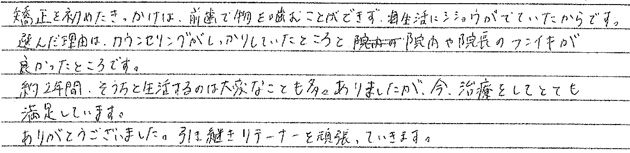 矯正を初めたきっかけは、前歯で物を噛むことができず、食生活にシショウがでていたからです。
選んだ理由は、カウンセリングがしっかりしていたところと 院内や院長のフンイキが
良かったところです。
約2年間、そうちと生活するのは大変なことも多々ありましたが、今、治療をしてとても
満足しています。
ありがとうございました。引き継きリテーナーを頑張っていきます。